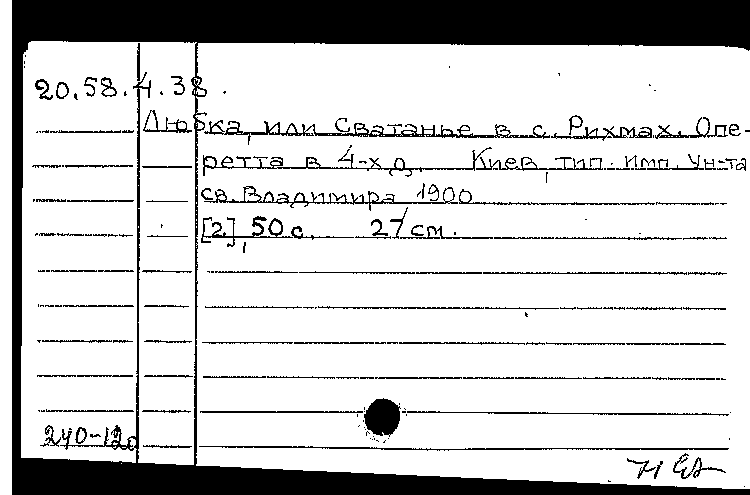 20.58.4.38.
Любка, или Сватанье в с. Рихмах. Опе-
ретта в 4-х д. Киев, тип. имп. ун-та
св. Владимира 1900
[2], 50 с. 27 см.
240-120